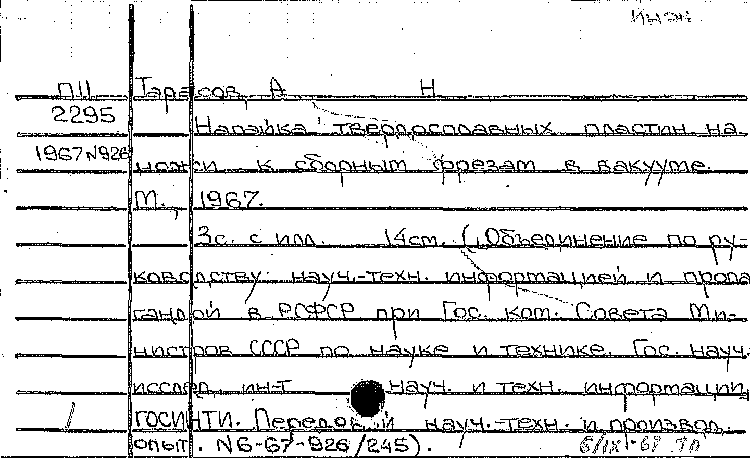 Инэн
П11 Тарасов, А Н
2295 Напайка твердосплавных пластин на
1967 N926 ножи к сборным фрезам в вакууме.
М., 1967.
3с. с илл. 14см. (Объединение по ру-
ководству науч.-техн. информацией и пропа
гандой в РСФСР при Гос. ком. Совета Ми-
нистров СССР по науке и технике. Гос. науч.
исслед. ин-т науч. и техн. информации,
ГОСИНТИ. Передовой науч.-техн. и производ.
опыт. N6-67-926/245).
6/IX-67